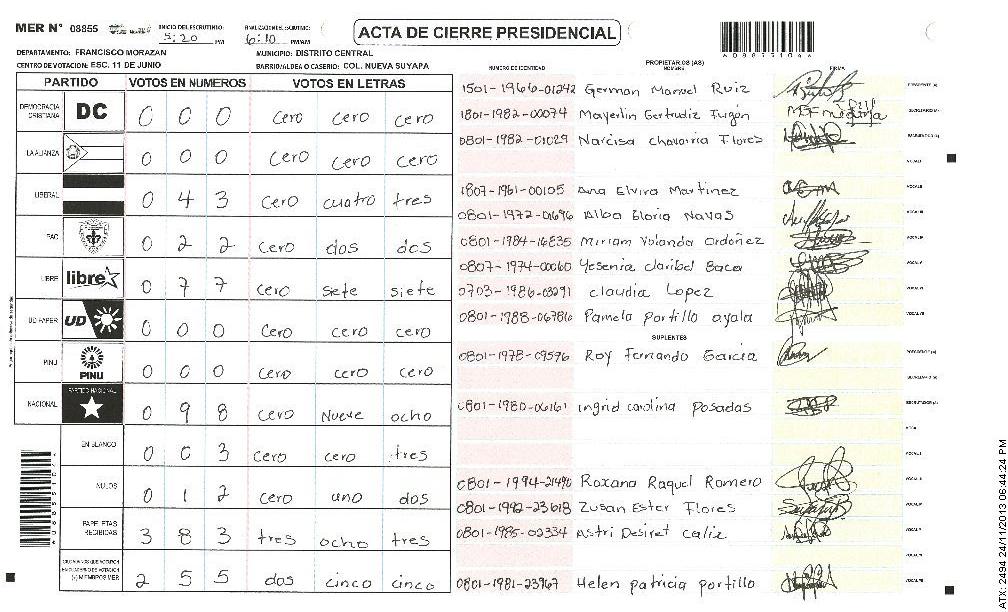 MER N° 08855 INICIO DEL ESCRUTINIO: 5:20 PM FINALIZACION DEL ESCRUTINIO: 6:10 PM/AM
ACTA DE CIERRE PRESIDENCIAL
DEPARTAMENTO: FRANCISCO MORAZAN MUNICIPIO: DISTRITO CENTRAL
CENTRO DE VOTACION: ESC. 11 DE JUNIO BARRIO/ALDEA O CASERIO: COL. NUEVA SUYAPA
PARTIDO VOTOS EN NUMEROS VOTOS EN LETRAS
DEMOCRACIA CRISTIANA DC 0 0 0 cero cero cero
LA ALIANZA 0 0 0 cero cero cero
LIBERAL 0 4 3 cero cuatro tres
PAC 0 2 2 cero dos dos
LIBRE libre 0 7 7 cero siete siete
UD FAPER UD 0 0 0 cero cero cero
PINU PINU 0 0 0 cero cero cero
NACIONAL PARTIDO NACIONAL 0 9 8 cero Nueve ocho
EN BLANCO 0 0 3 cero cero tres
NULOS 0 1 2 cero uno dos
PAPELETAS RECIBIDAS 3 8 3 tres ocho tres
CIUDADANOS QUE VOTARON EN CUADERNO DE VOTACION (+) MIEMBROS MER 2 5 5 dos cinco cinco
NUMERO DE IDENTIDAD PROPIETARIOS (AS) NOMBRE FIRMA
1501-1966-01242 German Manuel Ruiz PRESIDENTE (A)
1801-1982-00074 Mayerlin Gertrudiz Turgón SECRETARIO (A)
0801-1982-01029 Narcisa chavarria Flores ESCRUTADOR (A)
VOCAL I
1807-1961-00105 Ana Elvira Martinez VOCAL II
0801-1972-01696 Alba Gloria Navas VOCAL III
0801-1984-16835 Miriam Yolanda ordoñez VOCAL IV
0807-1974-00060 Yesenia claribel Baca VOCAL V
0703-1986-03291 claudia Lopez VOCAL VI
0801-1988-06786 Pamela portillo ayala VOCAL VII
SUPLENTES
0801-1978-09596 Roy Fernando Garcia PRESIDENTE (A)
SECRETARIO (A)
0801-1980-06161 ingrid carolina posadas ESCRUTADOR (A)
VOCAL I
0801-1994-21490 Roxana Raquel Romero VOCAL II
0801-1992-23618 Zusan Ester Flores
0801-1985-02334 Astri Desiret calix
0801-1981-23967 Helen patricia portillo VOCAL VII
ATX-2494-24/11/2013 06:44:24 PM